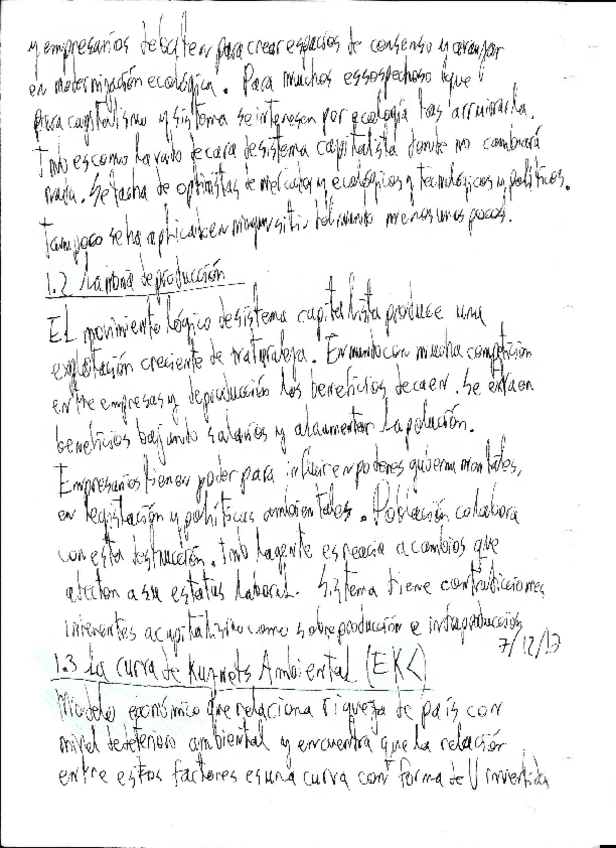 y empresarios debaten para crear espacios de consenso y avanzar
en modernización ecológica. Para muchos es sospechoso que
para capitalismo y sistema se interesen por ecología tras arruinarla.
Tmb es como lavado de cara de sistema capitalista donde no cambiará
nada. Se tacha de optimistas de mercado y ecológicos y tecnológicos y políticos.
Tampoco se ha aplicado en ningun sitio del mundo menos unos pocos.
1.2 La noria de producción
El movimiento lógico de sistema capitalista produce una
explotación creciente de naturaleza. En mundo con mucha competición
entre empresas y de producción los beneficios decaen. Se extraen
beneficios bajando salarios y al aumentar la polución.
Empresarios tienen poder para influir en poderes gubernamentales,
en legislación y políticas ambientales. Población colabora
con esta destrucción. Tmb la gente es reacia a cambios que
afecten a su estatus laboral. Sistema tiene contradicciones
inherentes a capitalismo como sobreproducción e infraproducción
7/12/17
1.3 La curva de Kuznets Ambiental (EKC)
Modelo económico que relaciona riqueza de país con
nivel de deterioro ambiental y encuentra que la relación
entre estos factores es una curva con forma de U invertida